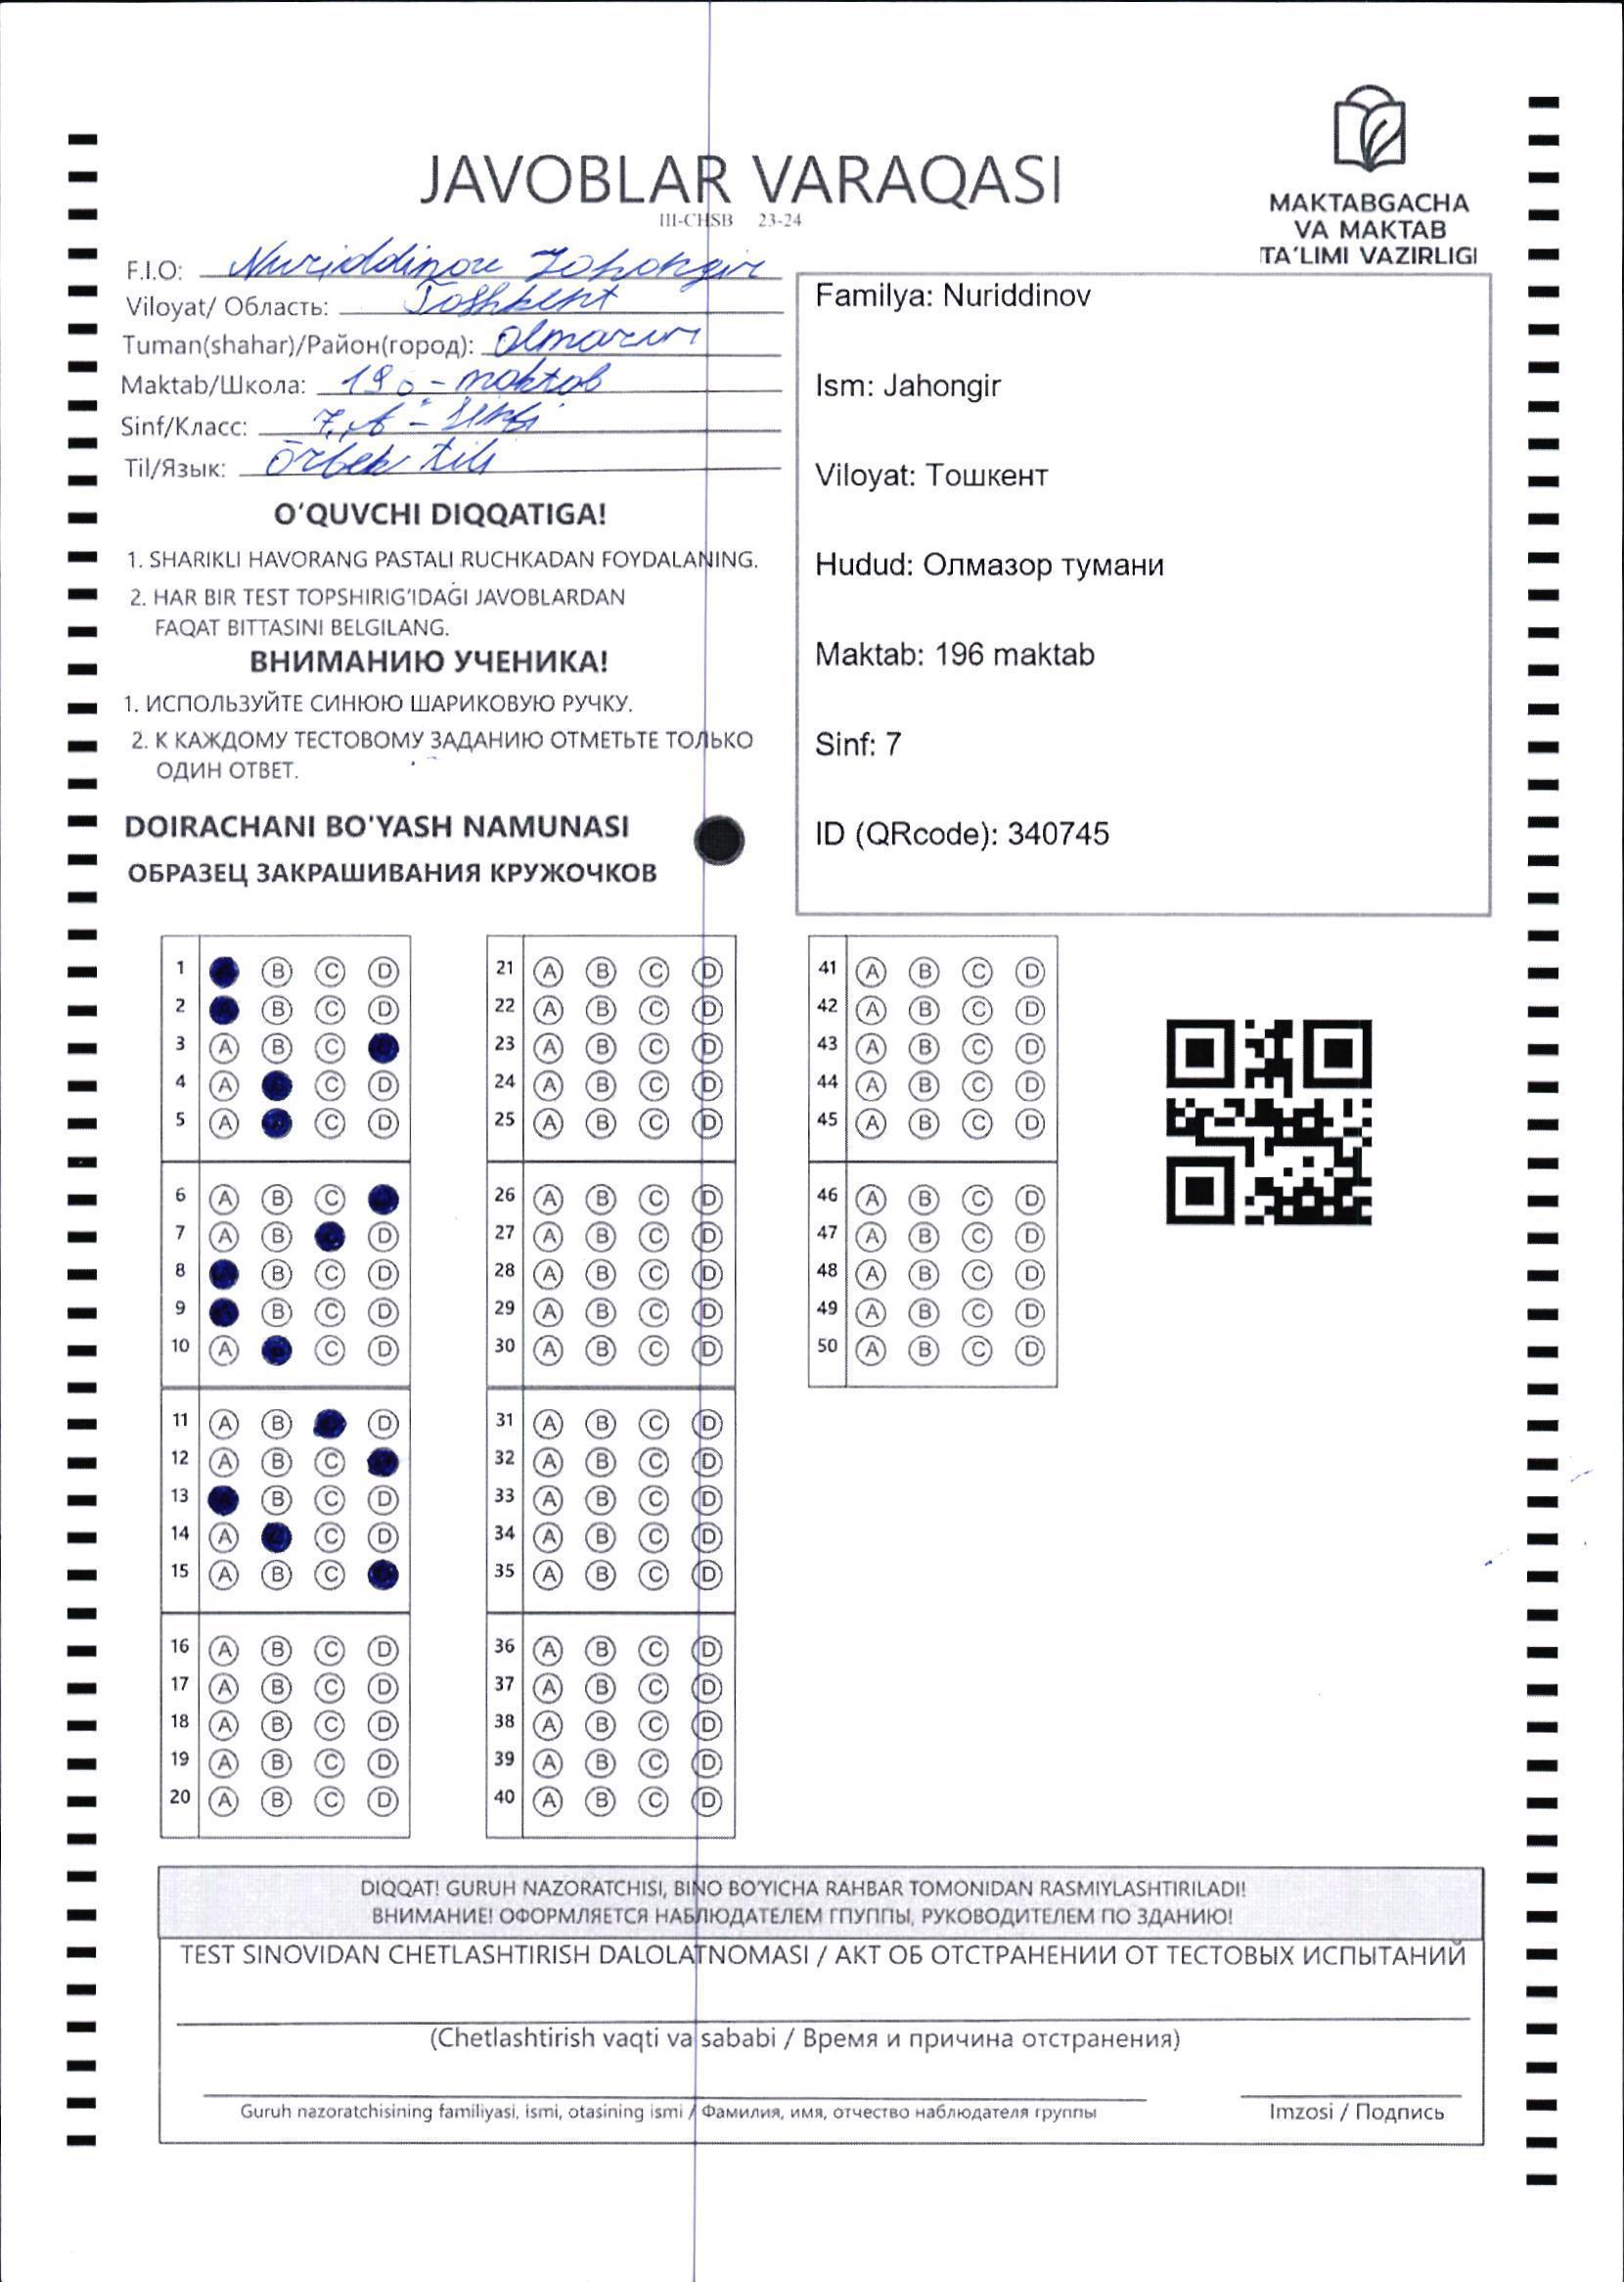 JAVOBLAR VARAQASI
III-CHSB 23-24
MAKTABGACHA
VA MAKTAB
TA'LIMI VAZIRLIGI
F.I.O: Nuriddinov Jahongir
Viloyat/ Область: Toshkent
Tuman(shahar)/Район(город): Olmazor
Maktab/Школа: - maktab
Sinf/Класс: 7 - sinfi
Til/Язык: O'zbek tili
O'QUVCHI DIQQATIGA!
1. SHARIKLI HAVORANG PASTALI RUCHKADAN FOYDALANING.
2. HAR BIR TEST TOPSHIRIG'IDAGI JAVOBLARDAN
FAQAT BITTASINI BELGILANG.
ВНИМАНИЮ УЧЕНИКА!
1. ИСПОЛЬЗУЙТЕ СИНЮЮ ШАРИКОВУЮ РУЧКУ.
2. К КАЖДОМУ ТЕСТОВОМУ ЗАДАНИЮ ОТМЕТЬТЕ ТОЛЬКО
ОДИН ОТВЕТ.
DOIRACHANI BO'YASH NAMUNASI
ОБРАЗЕЦ ЗАКРАШИВАНИЯ КРУЖОЧКОВ
Familya: Nuriddinov
Ism: Jahongir
Viloyat: Тошкент
Hudud: Олмазор тумани
Maktab: 196 maktab
Sinf: 7
ID (QRcode): 340745
1 B C D
2 B C D
3 A B C
4 A C D
5 A C D
6 A B C
7 A B D
8 B C D
9 B C D
10 A C D
11 A B D
12 A B C
13 B C D
14 A C D
15 A B C
16 A B C D
17 A B C D
18 A B C D
19 A B C D
20 A B C D
21 A B C D
22 A B C D
23 A B C D
24 A B C D
25 A B C D
26 A B C D
27 A B C D
28 A B C D
29 A B C D
30 A B C D
31 A B C D
32 A B C D
33 A B C D
34 A B C D
35 A B C D
36 A B C D
37 A B C D
38 A B C D
39 A B C D
40 A B C D
41 A B C D
42 A B C D
43 A B C D
44 A B C D
45 A B C D
46 A B C D
47 A B C D
48 A B C D
49 A B C D
50 A B C D
DIQQAT! GURUH NAZORATCHISI, BINO BO'YICHA RAHBAR TOMONIDAN RASMIYLASHTIRILADI!
ВНИМАНИЕ! ОФОРМЛЯЕТСЯ НАБЛЮДАТЕЛЕМ ГПУППЫ, РУКОВОДИТЕЛЕМ ПО ЗДАНИЮ!
TEST SINOVIDAN CHETLASHTIRISH DALOLATNOMASI / АКТ ОБ ОТСТРАНЕНИИ ОТ ТЕСТОВЫХ ИСПЫТАНИЙ
(Chetlashtirish vaqti va sababi / Время и причина отстранения)
Guruh nazoratchisining familiyasi, ismi, otasining ismi / Фамилия, имя, отчество наблюдателя группы
Imzosi / Подпись